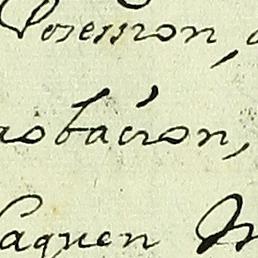 Posession,
robación,
aguen M